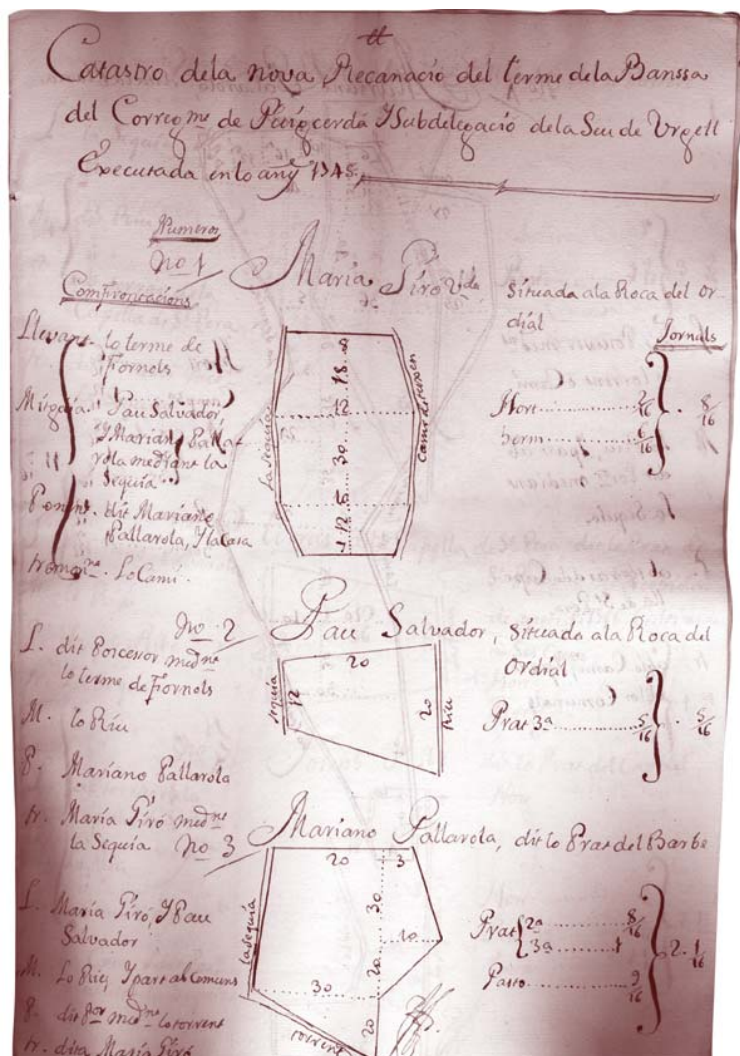 tt
Catastro dela nova Recanació del terme dela Banssa
del Corregme de Puigcerdá Y Subdelegació dela Seu de Urgell
Executada en lo any 1745.
Numeros
no 1
Maria Piró Vda
Situada ala Roca del or-
dial
Confrontacions
Jornals
Llevant. lo terme de
Fornols
Mitgdia. Pau Salvador
Y Mariano Palla-
rola mediant la
Sequia
Ponent. dit Mariano
Pallarola, Y la Casa
tramonna. Lo Camí.
La Sequia
18
12
30
8
12
4
Hort 2/16
herm 6/16
8/16
no 2
Pau Salvador, Situada ala Roca del
Ordial
L. dit Porcessor medne
lo terme de Fornols
M. lo Riu
P. Mariano Pallarola
tr. Maria Piró medne
la Sequia
sequia
20
12
20
Riu
Prat 3a 5/16
5/16
no 3
Mariano Pallarola, dit lo Prat del Barbe
L. Maria Piró, Y Pau
Salvador
M. Lo Riu, Y part ab Comuns
P. dit Por medne lo torrent
tr. dita Maria Piró
La Sequia
20
3
30
10
20
30
20
torrent
Prat 2a 8/16
3a 1
Pasto 9/16
2. 1/16